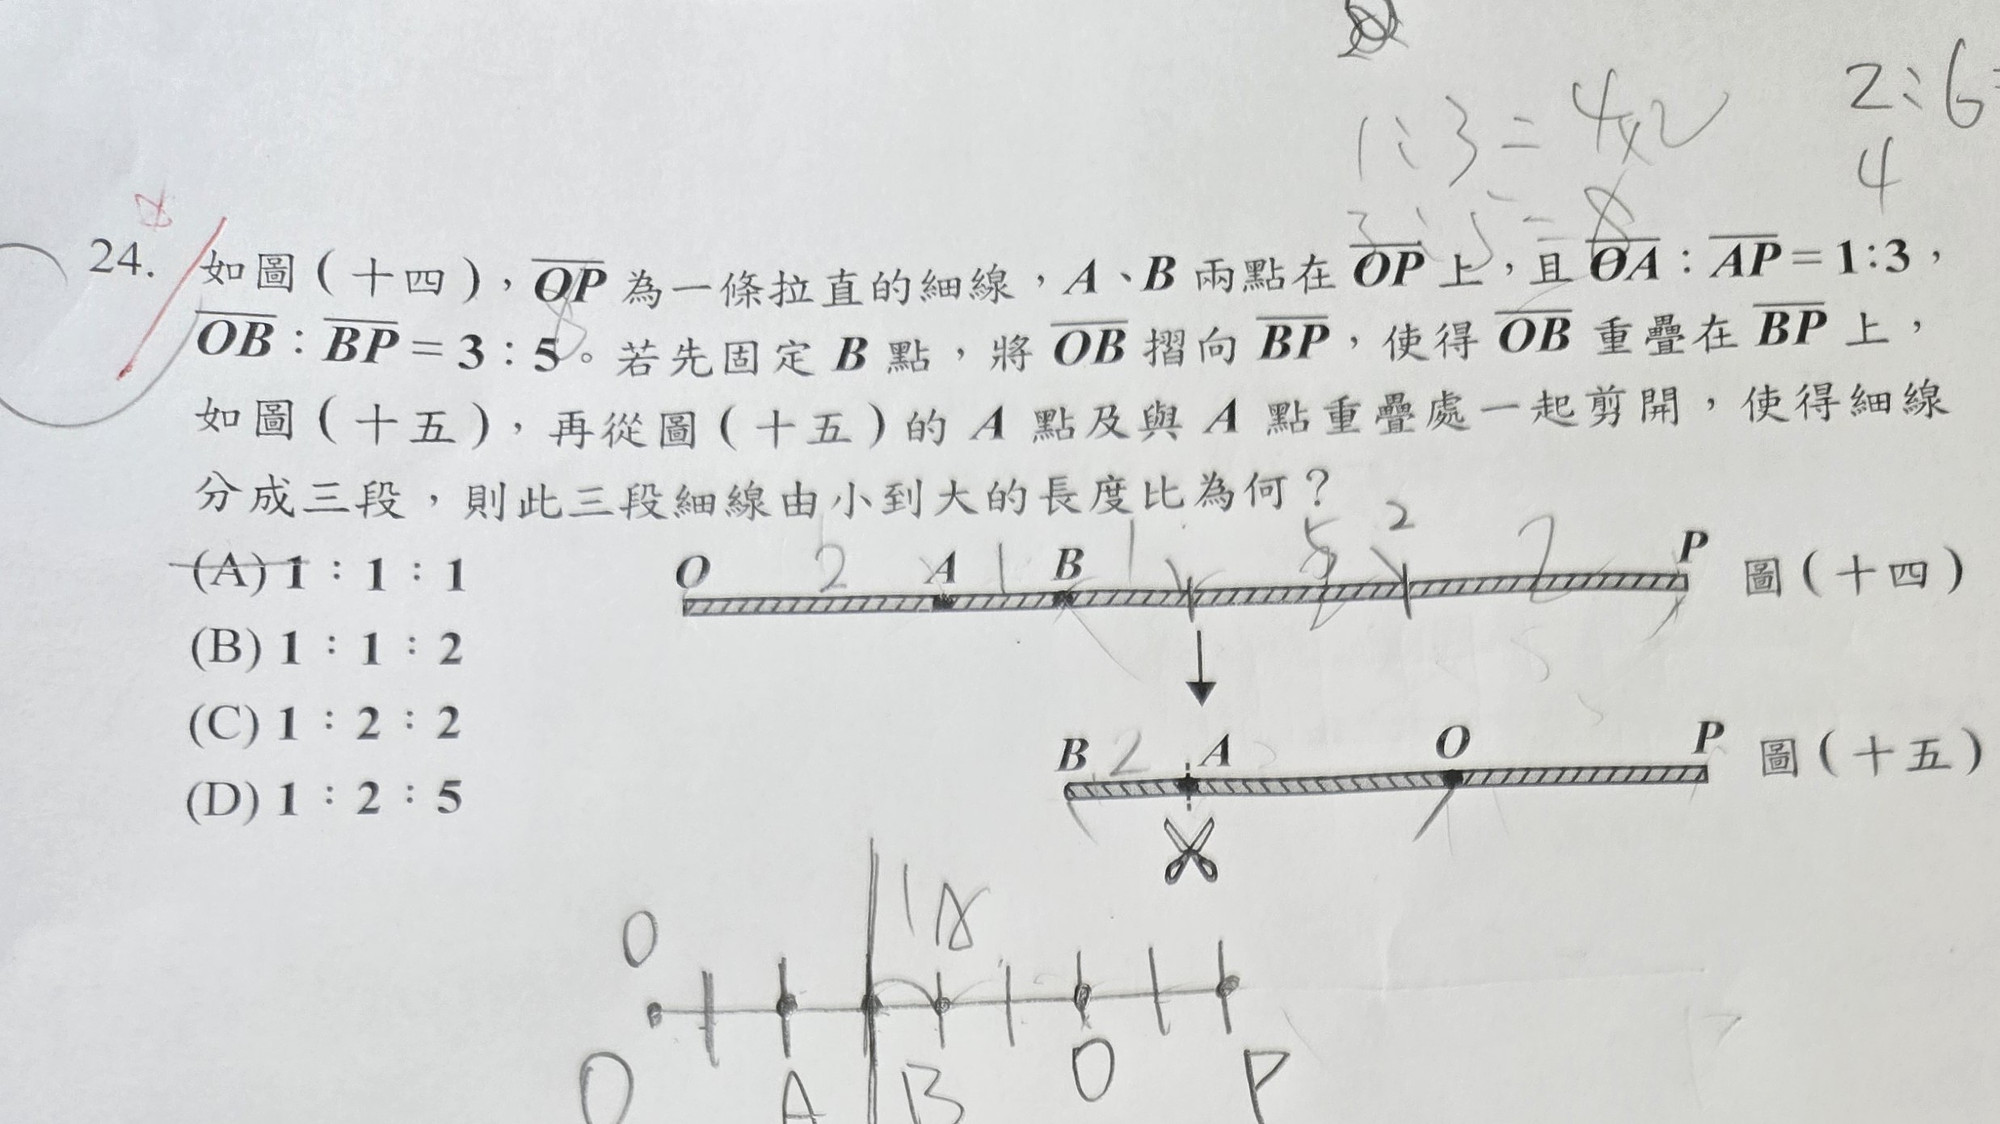 1:3=4x2
2:6
4
3:5=8
24. 如圖(十四),OP 為一條拉直的細線,A、B 兩點在 OP 上,且 OA:AP=1:3,
OB:BP=3:5。若先固定 B 點,將 OB 摺向 BP,使得 OB 重疊在 BP 上,
如圖(十五),再從圖(十五)的 A 點及與 A 點重疊處一起剪開,使得細線
分成三段,則此三段細線由小到大的長度比為何?
(A) 1:1:1
(B) 1:1:2
(C) 1:2:2
(D) 1:2:5
O 2 A 1 B 1 5 2 2 P 圖(十四)
B 2 A O P 圖(十五)
O
O A B O P